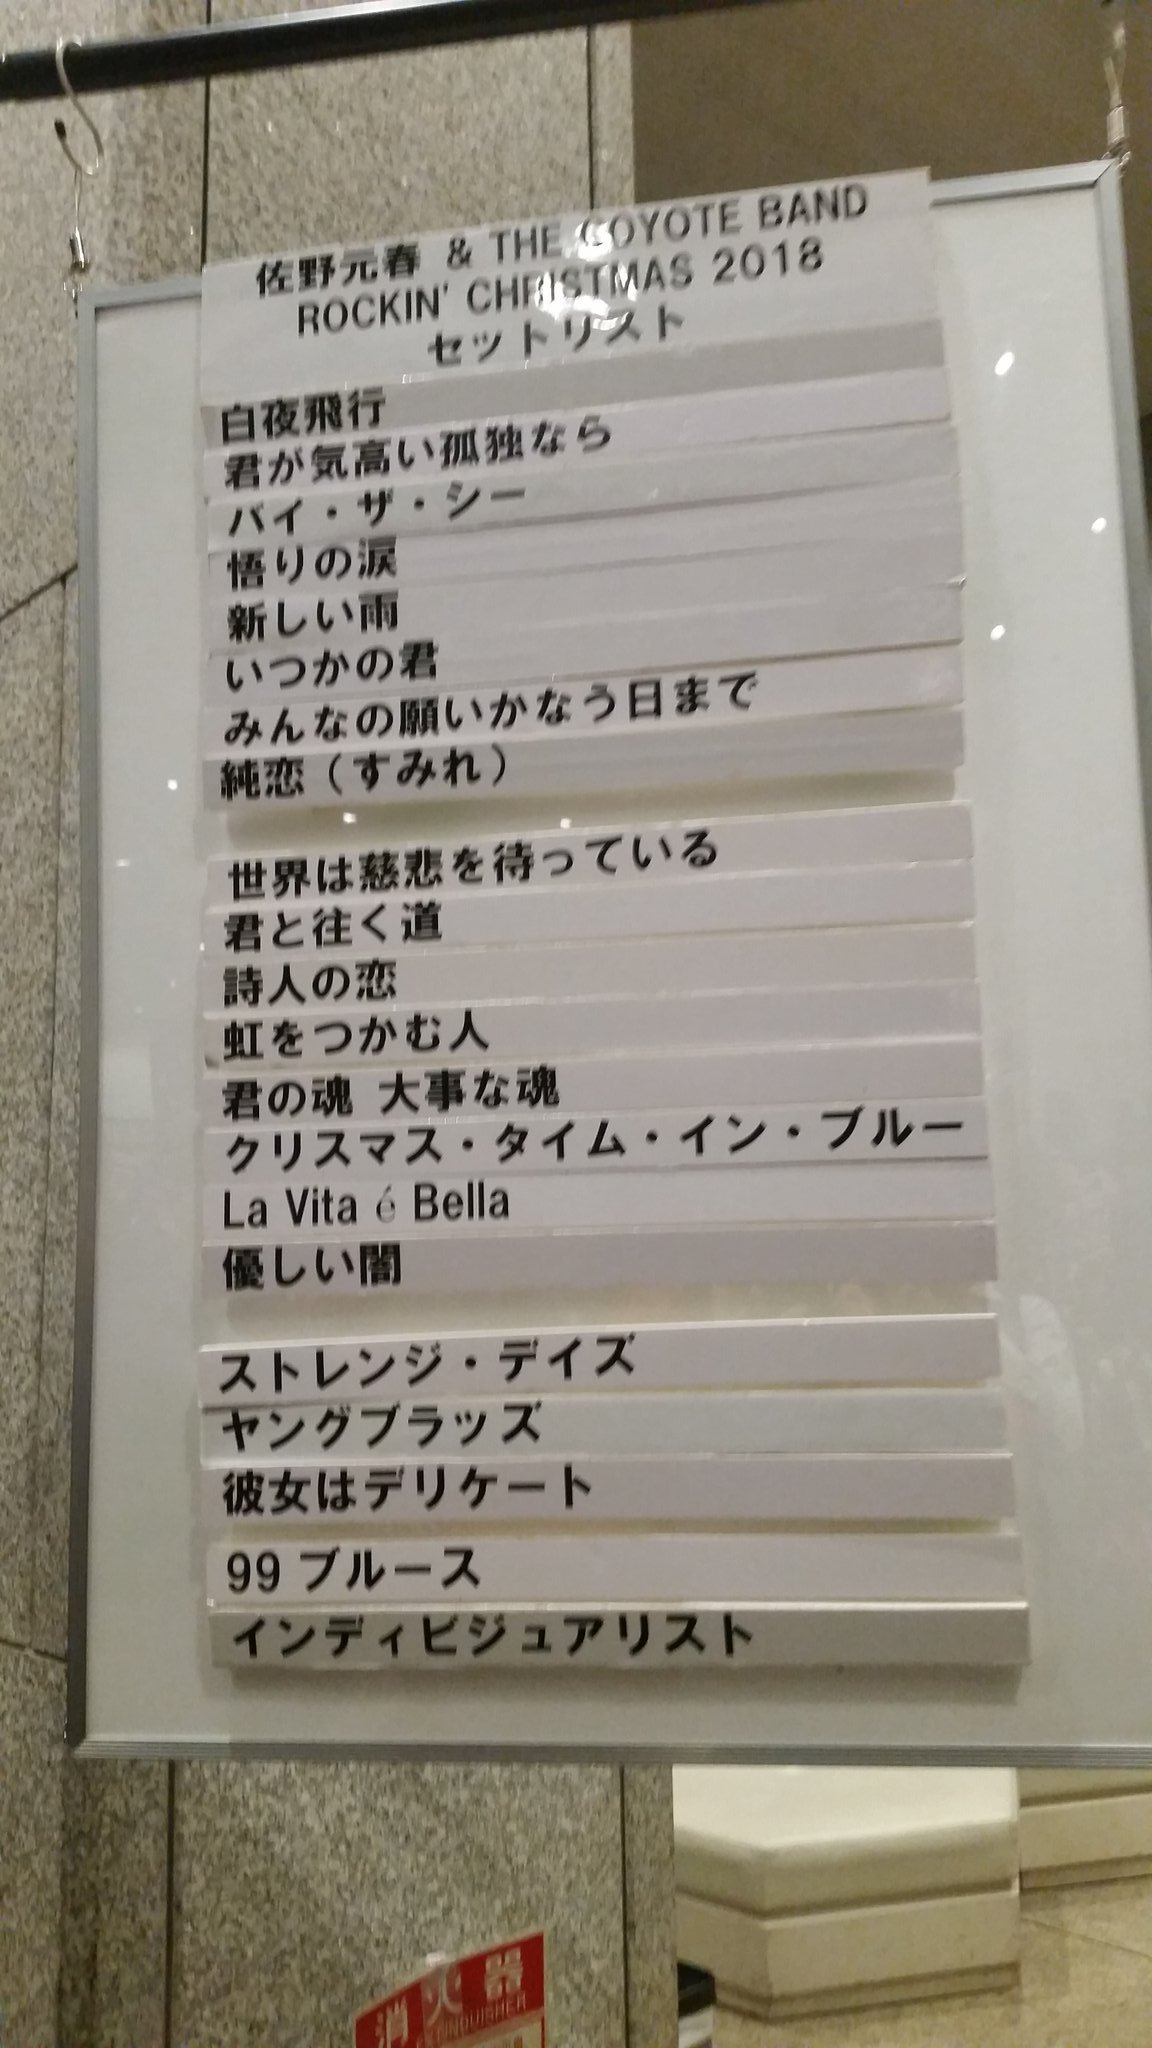 佐野元春 & THE COYOTE BAND
ROCKIN' CHRISTMAS 2018
セットリスト
白夜飛行
君が気高い孤独なら
バイ・ザ・シー
悟りの涙
新しい雨
いつかの君
みんなの願いかなう日まで
純恋（すみれ）
世界は慈悲を待っている
君と往く道
詩人の恋
虹をつかむ人
君の魂 大事な魂
クリスマス・タイム・イン・ブルー
La Vita é Bella
優しい闇
ストレンジ・デイズ
ヤングブラッズ
彼女はデリケート
99 ブルース
インディビジュアリスト
消火器